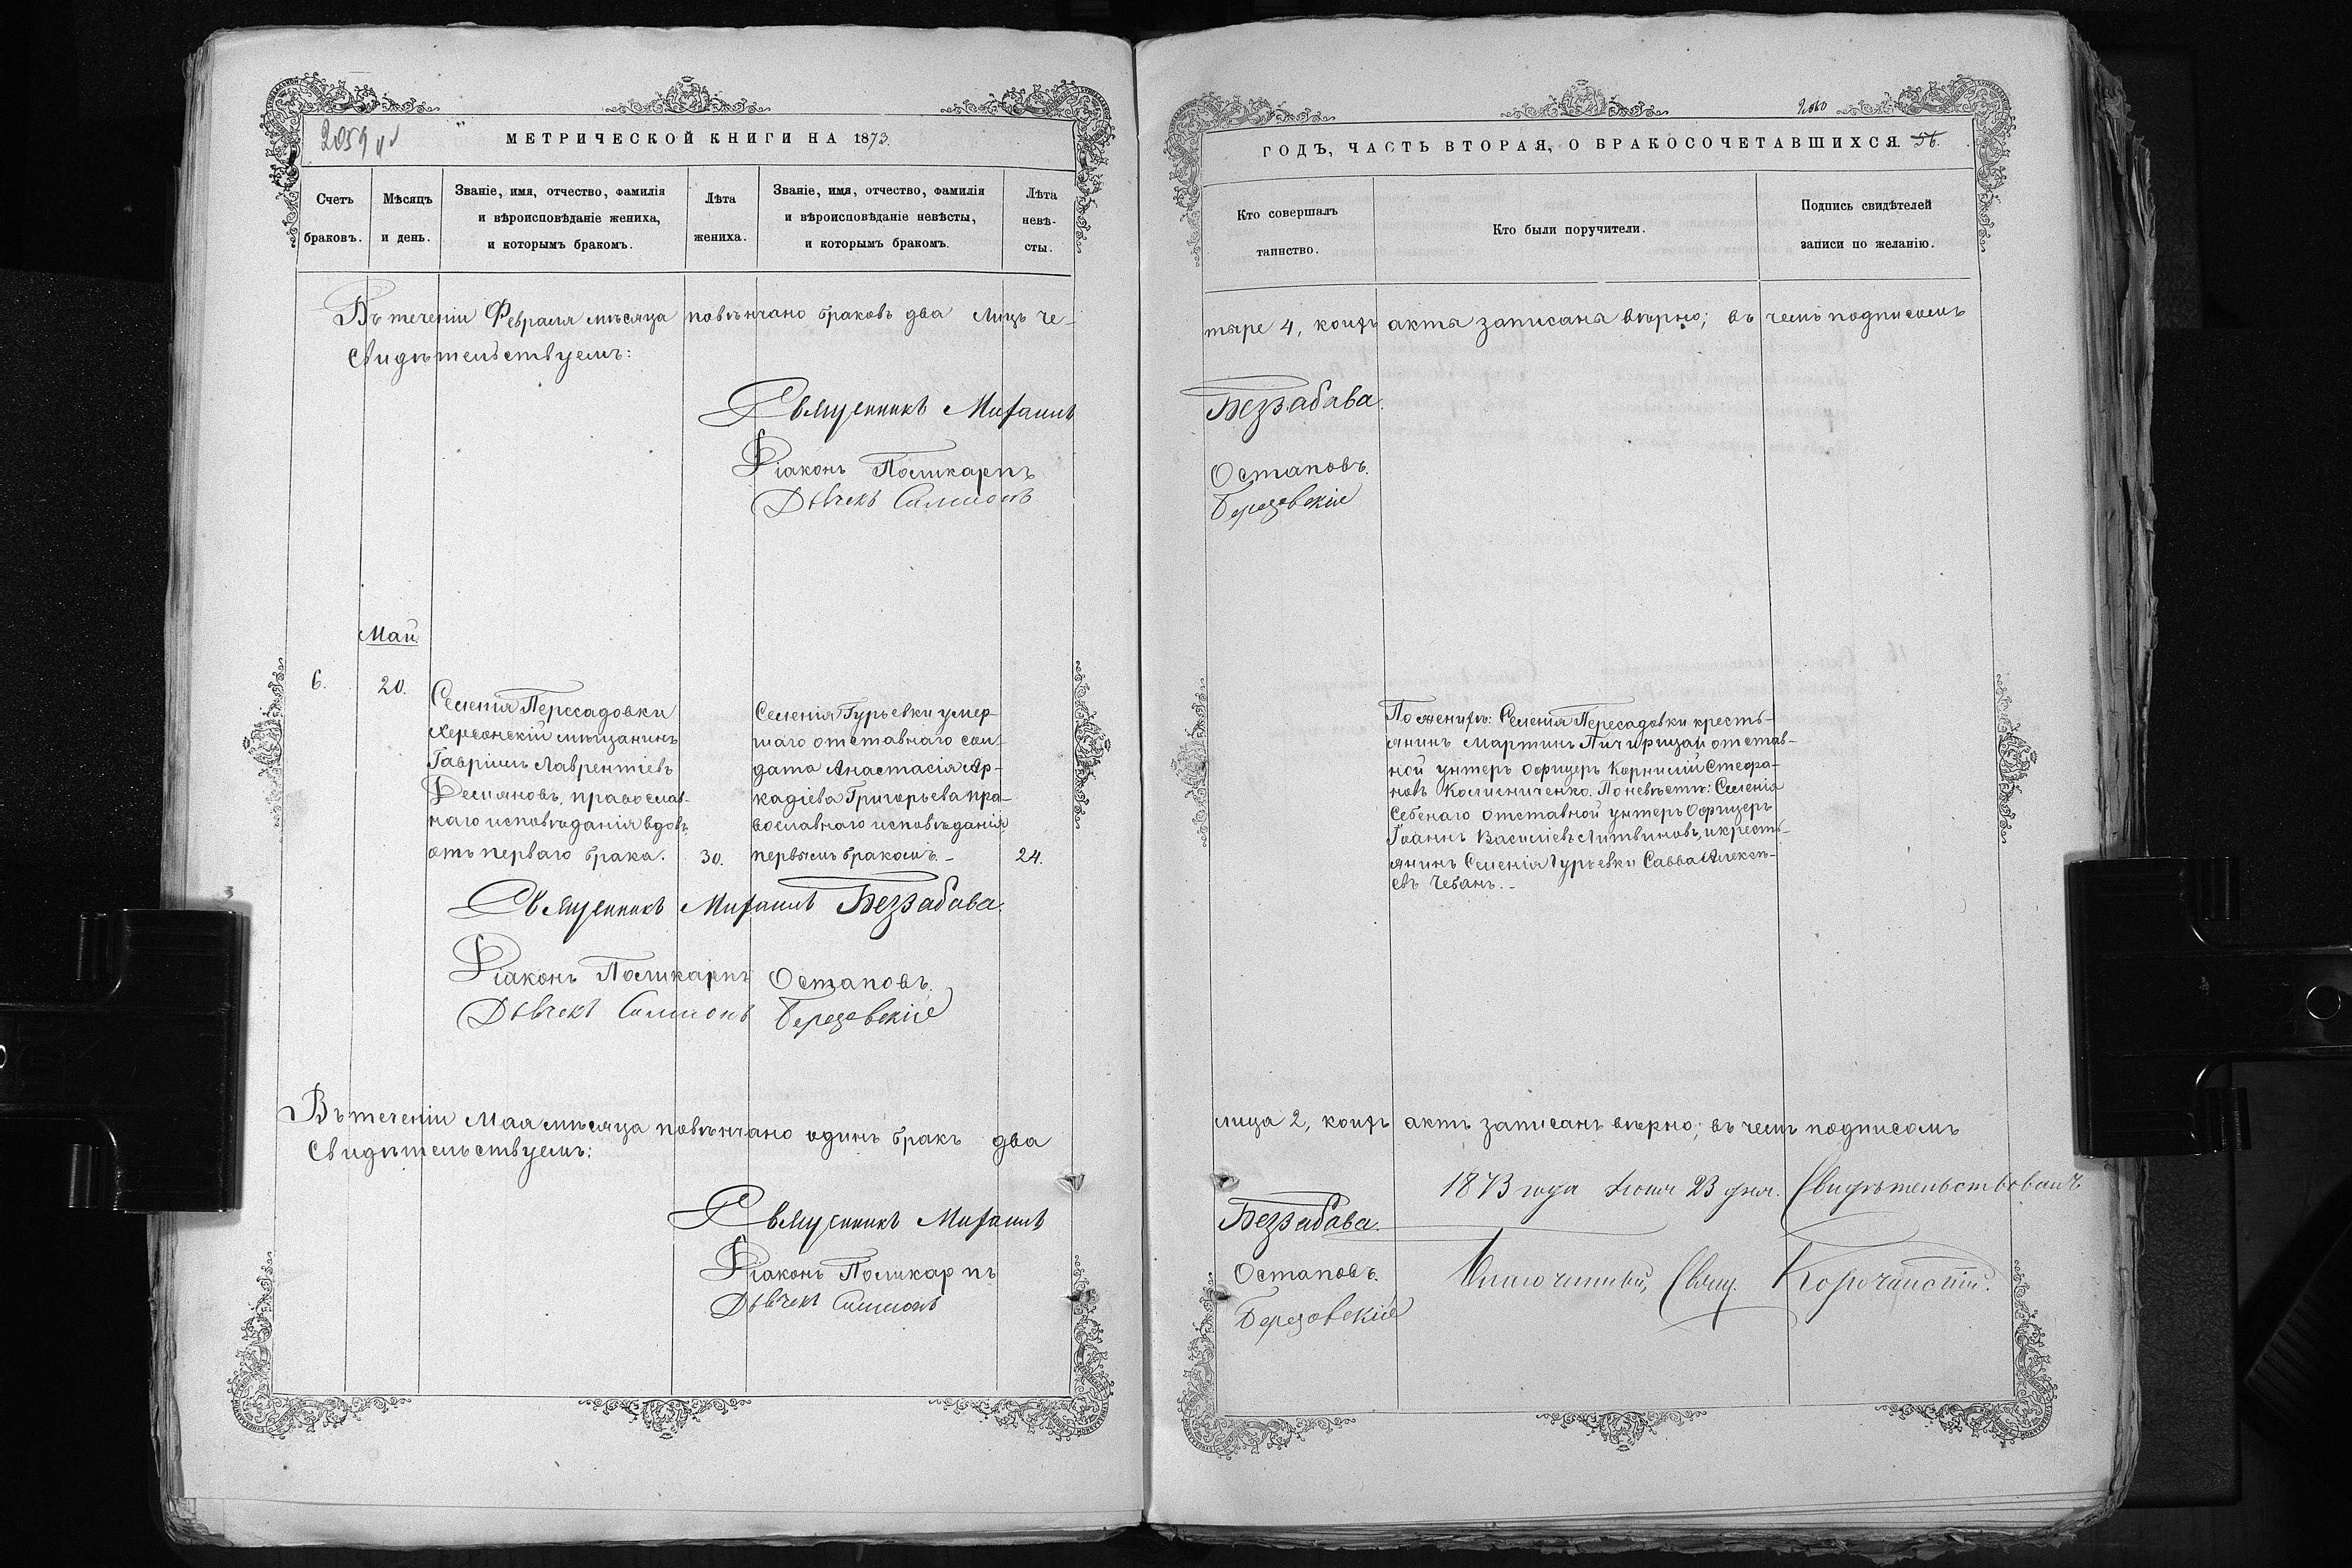 2059
МЕТРИЧЕСКОЙ КНИГИ НА 1873.
Счетъ браковъ.
Мѣсяцъ и день.
Званіе, имя, отчество, фамилія
и вѣроисповѣданіе жениха,
и которымъ бракомъ.
Лѣта жениха.
Званіе, имя, отчество, фамилія
и вѣроисповѣданіе невѣсты,
и которымъ бракомъ.
Лѣта невѣ-
сты.
Въ теченіи Февраля мѣсяца повѣнчано браковъ два лицъ че-
свидѣтельствуемъ:
Священникъ Михаилъ
Діаконъ Поликарпъ
Дьячекъ Симеонъ
Май.
6.
20.
Селенія Пересадовки
Херсонскій мѣщанинъ
Гавріилъ Лаврентіевъ
Демяновъ, православ-
наго исповѣданія вдовъ
отъ перваго брака.
30.
Селенія Гурьевки умер-
шаго отставнаго сол-
дата Анастасія Ар-
кадіева Григорьева пра-
вославнаго исповѣданія
первымъ бракомъ.
24.
Священникъ Михаилъ Беззабава.
Діаконъ Поликарпъ Остаповъ.
Дьячекъ Симеонъ Березовскій
Въ теченіи Мая мѣсяца повѣнчано одинъ бракъ два
свидѣтельствуемъ:
Священникъ Михаилъ
Діаконъ Поликарпъ
Дьячекъ Симеонъ
2060
ГОДЪ, ЧАСТЬ ВТОРАЯ, О БРАКОСОЧЕТАВШИХСЯ. 56.
Кто совершалъ
таинство.
Кто были поручители.
Подпись свидѣтелей
записи по желанію.
тыре 4, коихъ акта записана вѣрно; въ чемъ подписомъ
Беззабава.
Остаповъ.
Березовскій
По женихѣ: Селенія Пересадовки кресть-
янинъ Мартинъ отстав-
ной унтеръ офицеръ Корнилій Стефа-
новъ Колисниченко. По невѣстѣ: Селенія
Себенаго отставной унтеръ офицеръ
Іоаннъ Василіевъ Литвиновъ, и кресть-
янинъ Селенія Гурьевки Савва Алексѣ-
евъ Чебанъ.
лица 2, коихъ актъ записанъ вѣрно; въ чемъ подписомъ
1873 года Іюня 23 дня. Свидѣтельствовалъ
Беззабава.
Остаповъ.
Березовскій
Благочинный, Свящ.